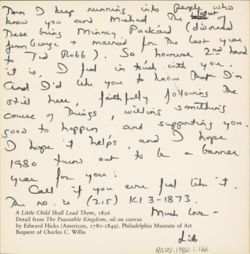 Then I keep running into people who
know you and Michael. The latest
these being Minney Packard (divorced
from George + married for the last year
to Ted Robb). So however 2nd hand
it is, I feel in touch with you.
And I'd like you to know that I'm
still here, faithfully following the
course of things, willing something
good to happen and supporting you.
I hope it helps, and I hope
1980 turns out to be a banner
year for you.
Call if you ever feel like it.
The no. is (215) K13-1873.
Much love -
A Little Child Shall Lead Them, 1826
Detail from The Peaceable Kingdom, oil on canvas
by Edward Hicks (American, 1780-1849). Philadelphia Museum of Art
Bequest of Charles C. Willis